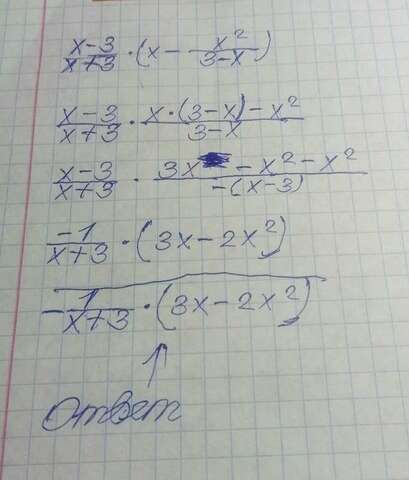 x-3/x+3 · (x - x²/3-x)
x-3/x+3 · x·(3-x)-x²/3-x
x-3/x+3 · 3x - x² - x²/-(x-3)
-1/x+3 · (3x-2x²)
-1/x+3 · (3x-2x²)
↑
ответ